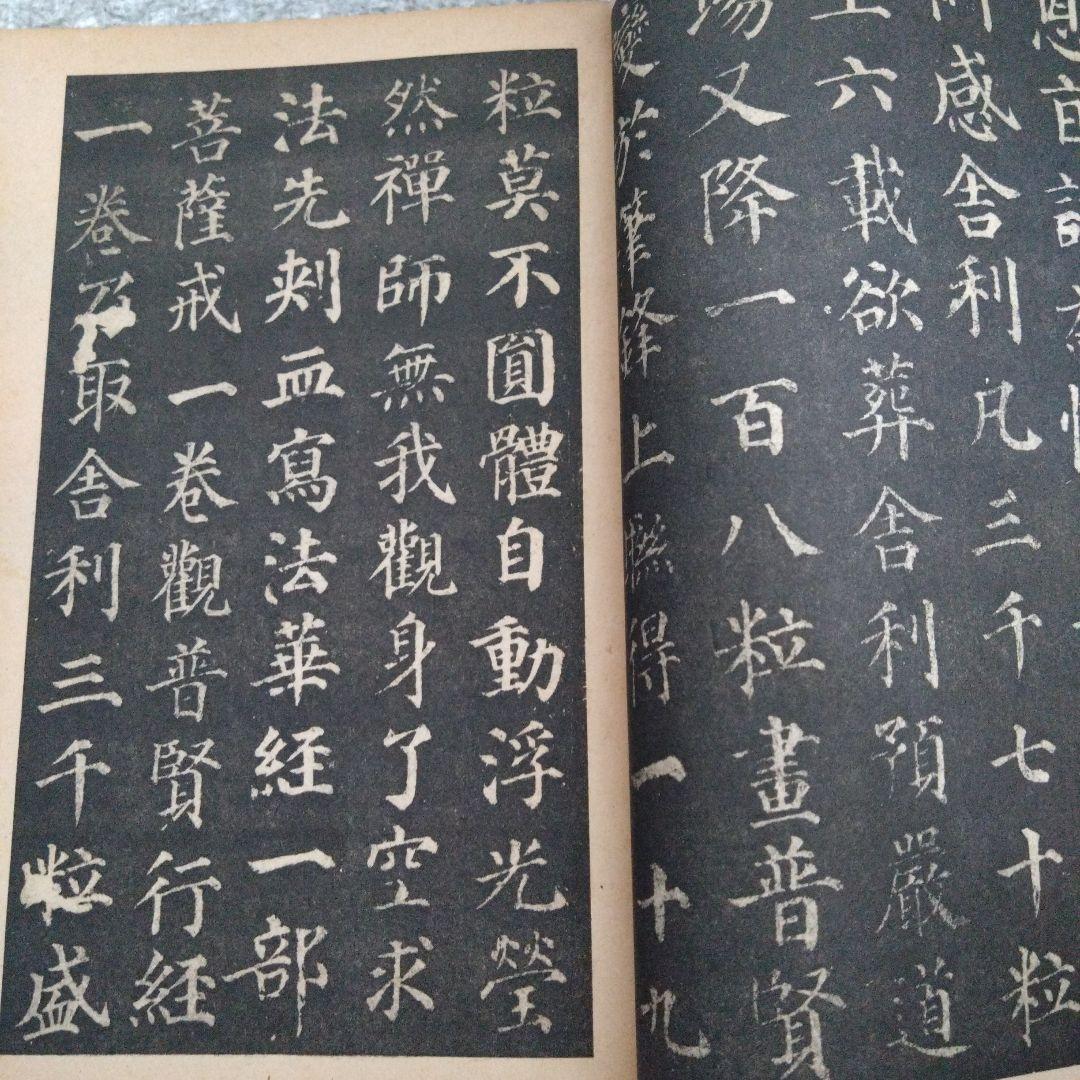 所感舍利凡三千七十粒
至六載欲葬舍利預嚴道
場又降一百八粒畫普賢
變於筆鋒上聯得一十九
粒莫不圓體自動浮光瑩
然禪師無我觀身了空求
法先刺血寫法華經一部
菩薩戒一卷觀普賢行經
一卷乃取舍利三千粒盛